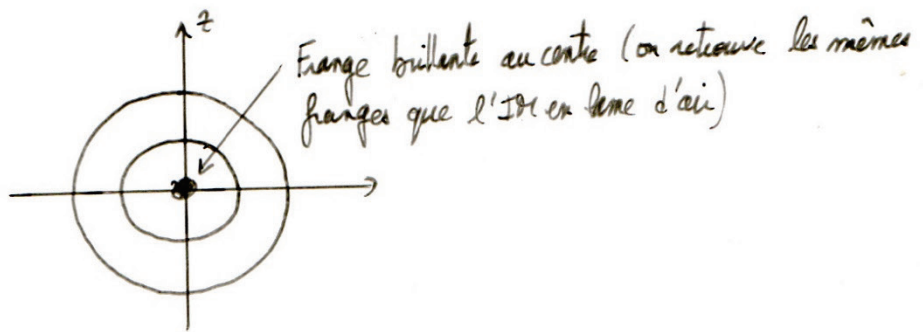 z
Frange brillante au centre (on retrouve les mêmes
franges que l'IM en lame d'air)